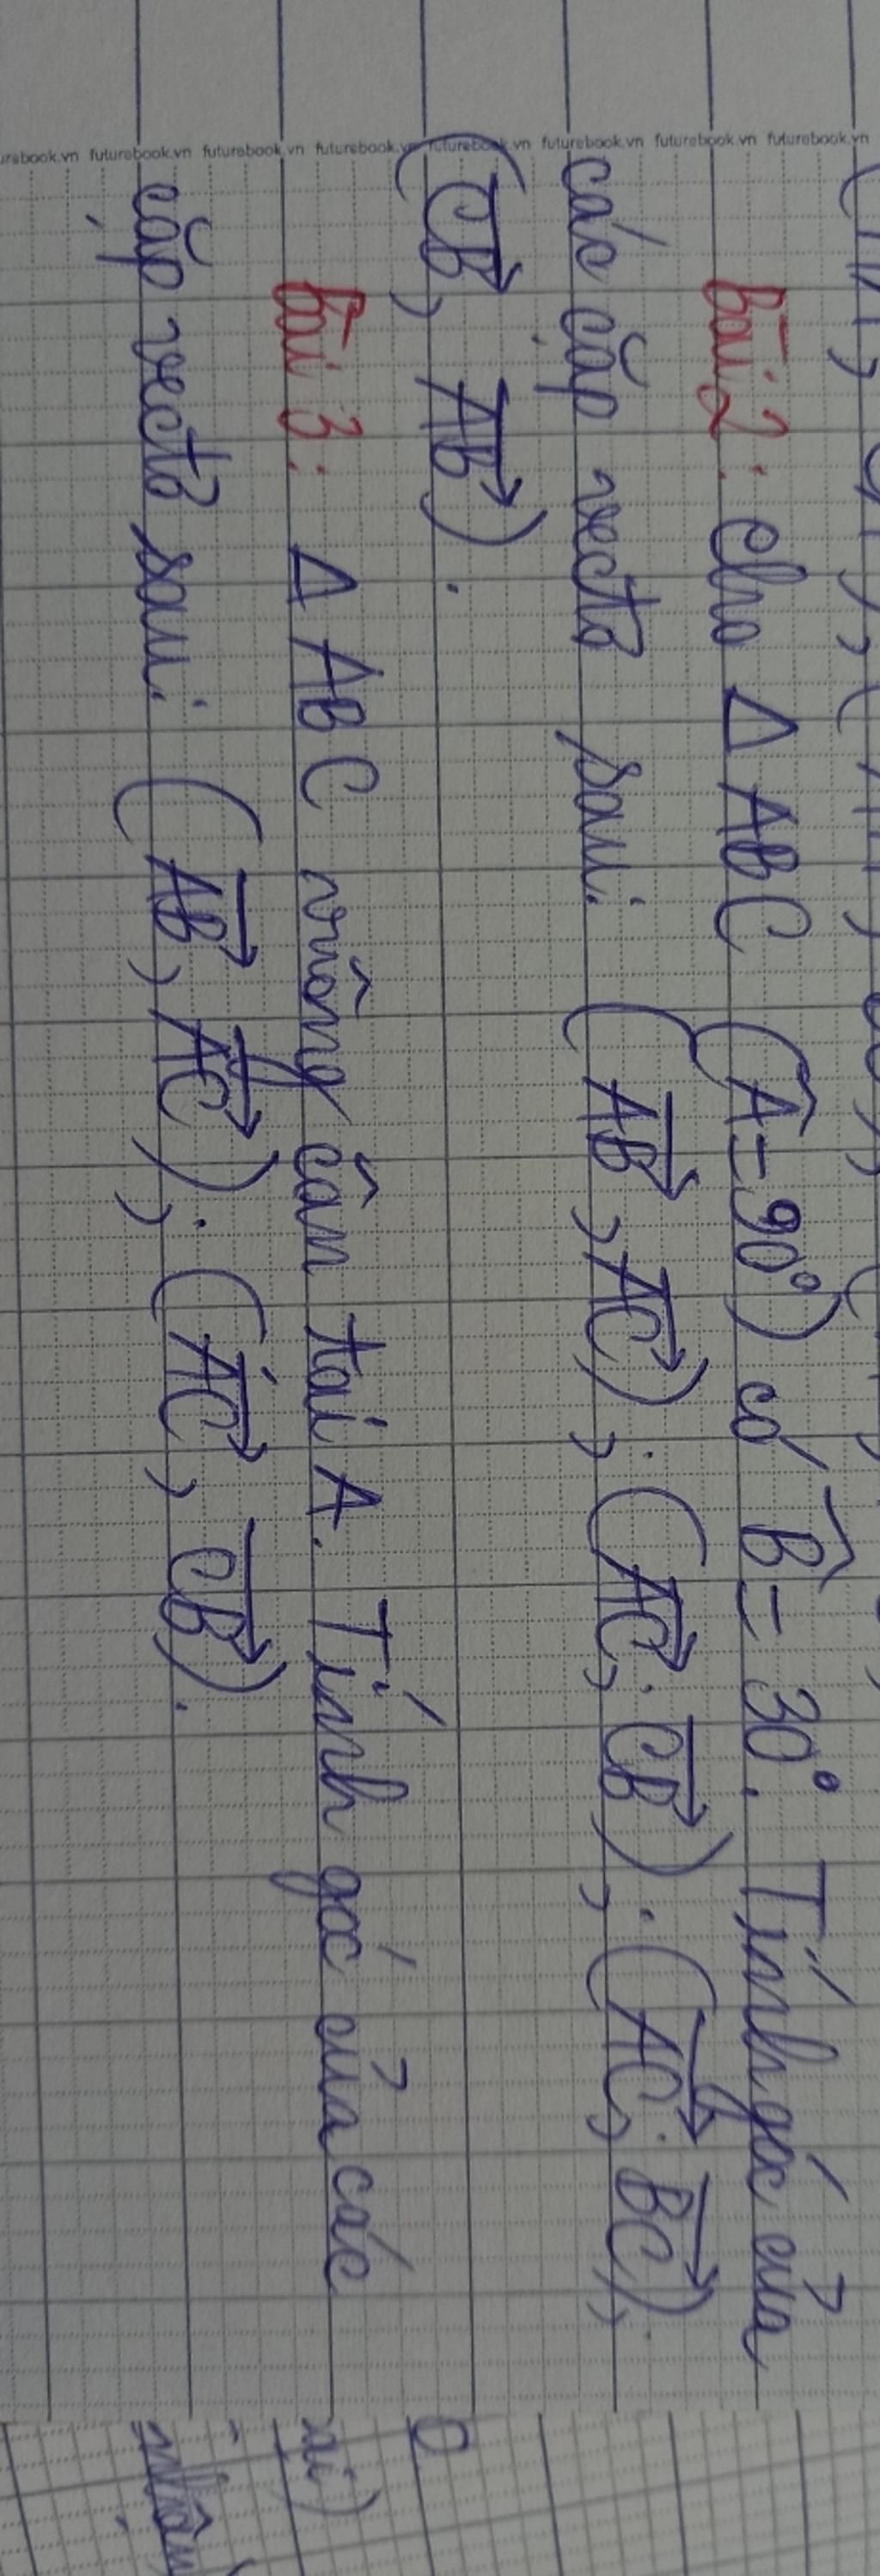 futurebook.vn futurebook.vn futurebook.vn futurebook.vn futurebook.vn futurebook.vn futurebook.vn
Bài 2: Cho Δ ABC (Â = 90°) có B̂ = 30°. Tính góc của
các cặp vectơ sau: (AB→, AC→); (AC→; CB→); (AC→; BC→);
(CB→, AB→).
Bài 3: Δ ABC vuông cân tại A. Tính góc của các
cặp vectơ sau: (AB→, AC→); (AC→, CB→).